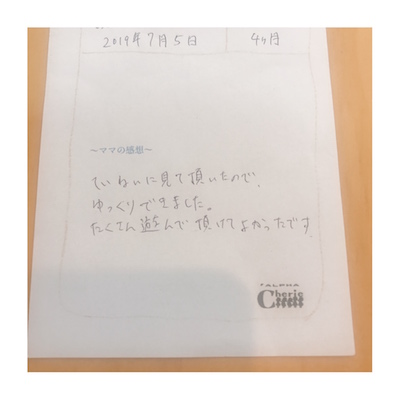 2019年7月5日 4ヶ月
~ママの感想~
ていねいに見て頂いたので、
ゆっくりできました。
たくさん遊んで頂けてよかったです
ALPHA
Cherie